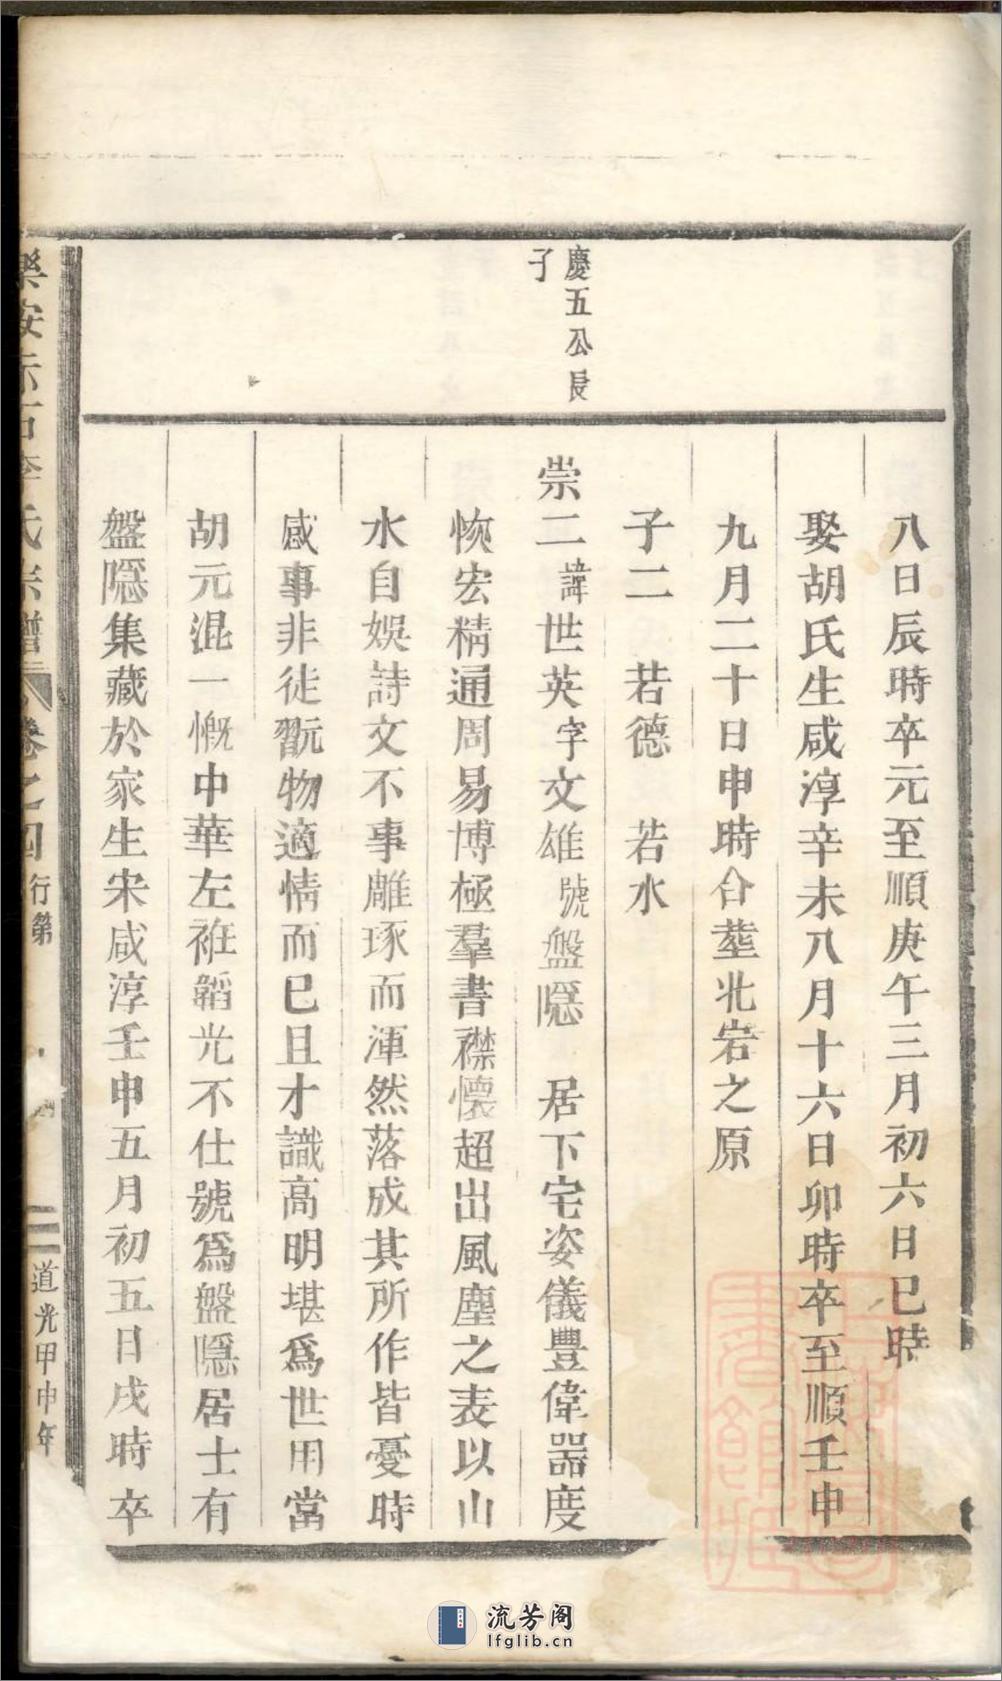 八日辰時卒元至順庚午三月初六日巳時
娶胡氏生咸淳辛未八月十六日卯時卒至順壬申
九月二十日申時合塟北岩之原
子二 若德 若水
慶五公長
子
崇二諱世英字文雄號盤隱 居下宅姿儀豐偉器度
恢宏精通周易博極羣書襟懷超出風塵之表以山
水自娛詩文不事雕琢而渾然落成其所作皆憂時
感事非徒翫物適情而已且才識高明堪爲世用當
胡元混一慨中華左袵韜光不仕號爲盤隱居士有
盤隱集藏於家生宋咸淳壬申五月初五日戌時卒
樂安示石李氏宗譜 卷之四 行第 二 道光甲申年
流芳阁
lfglib.cn